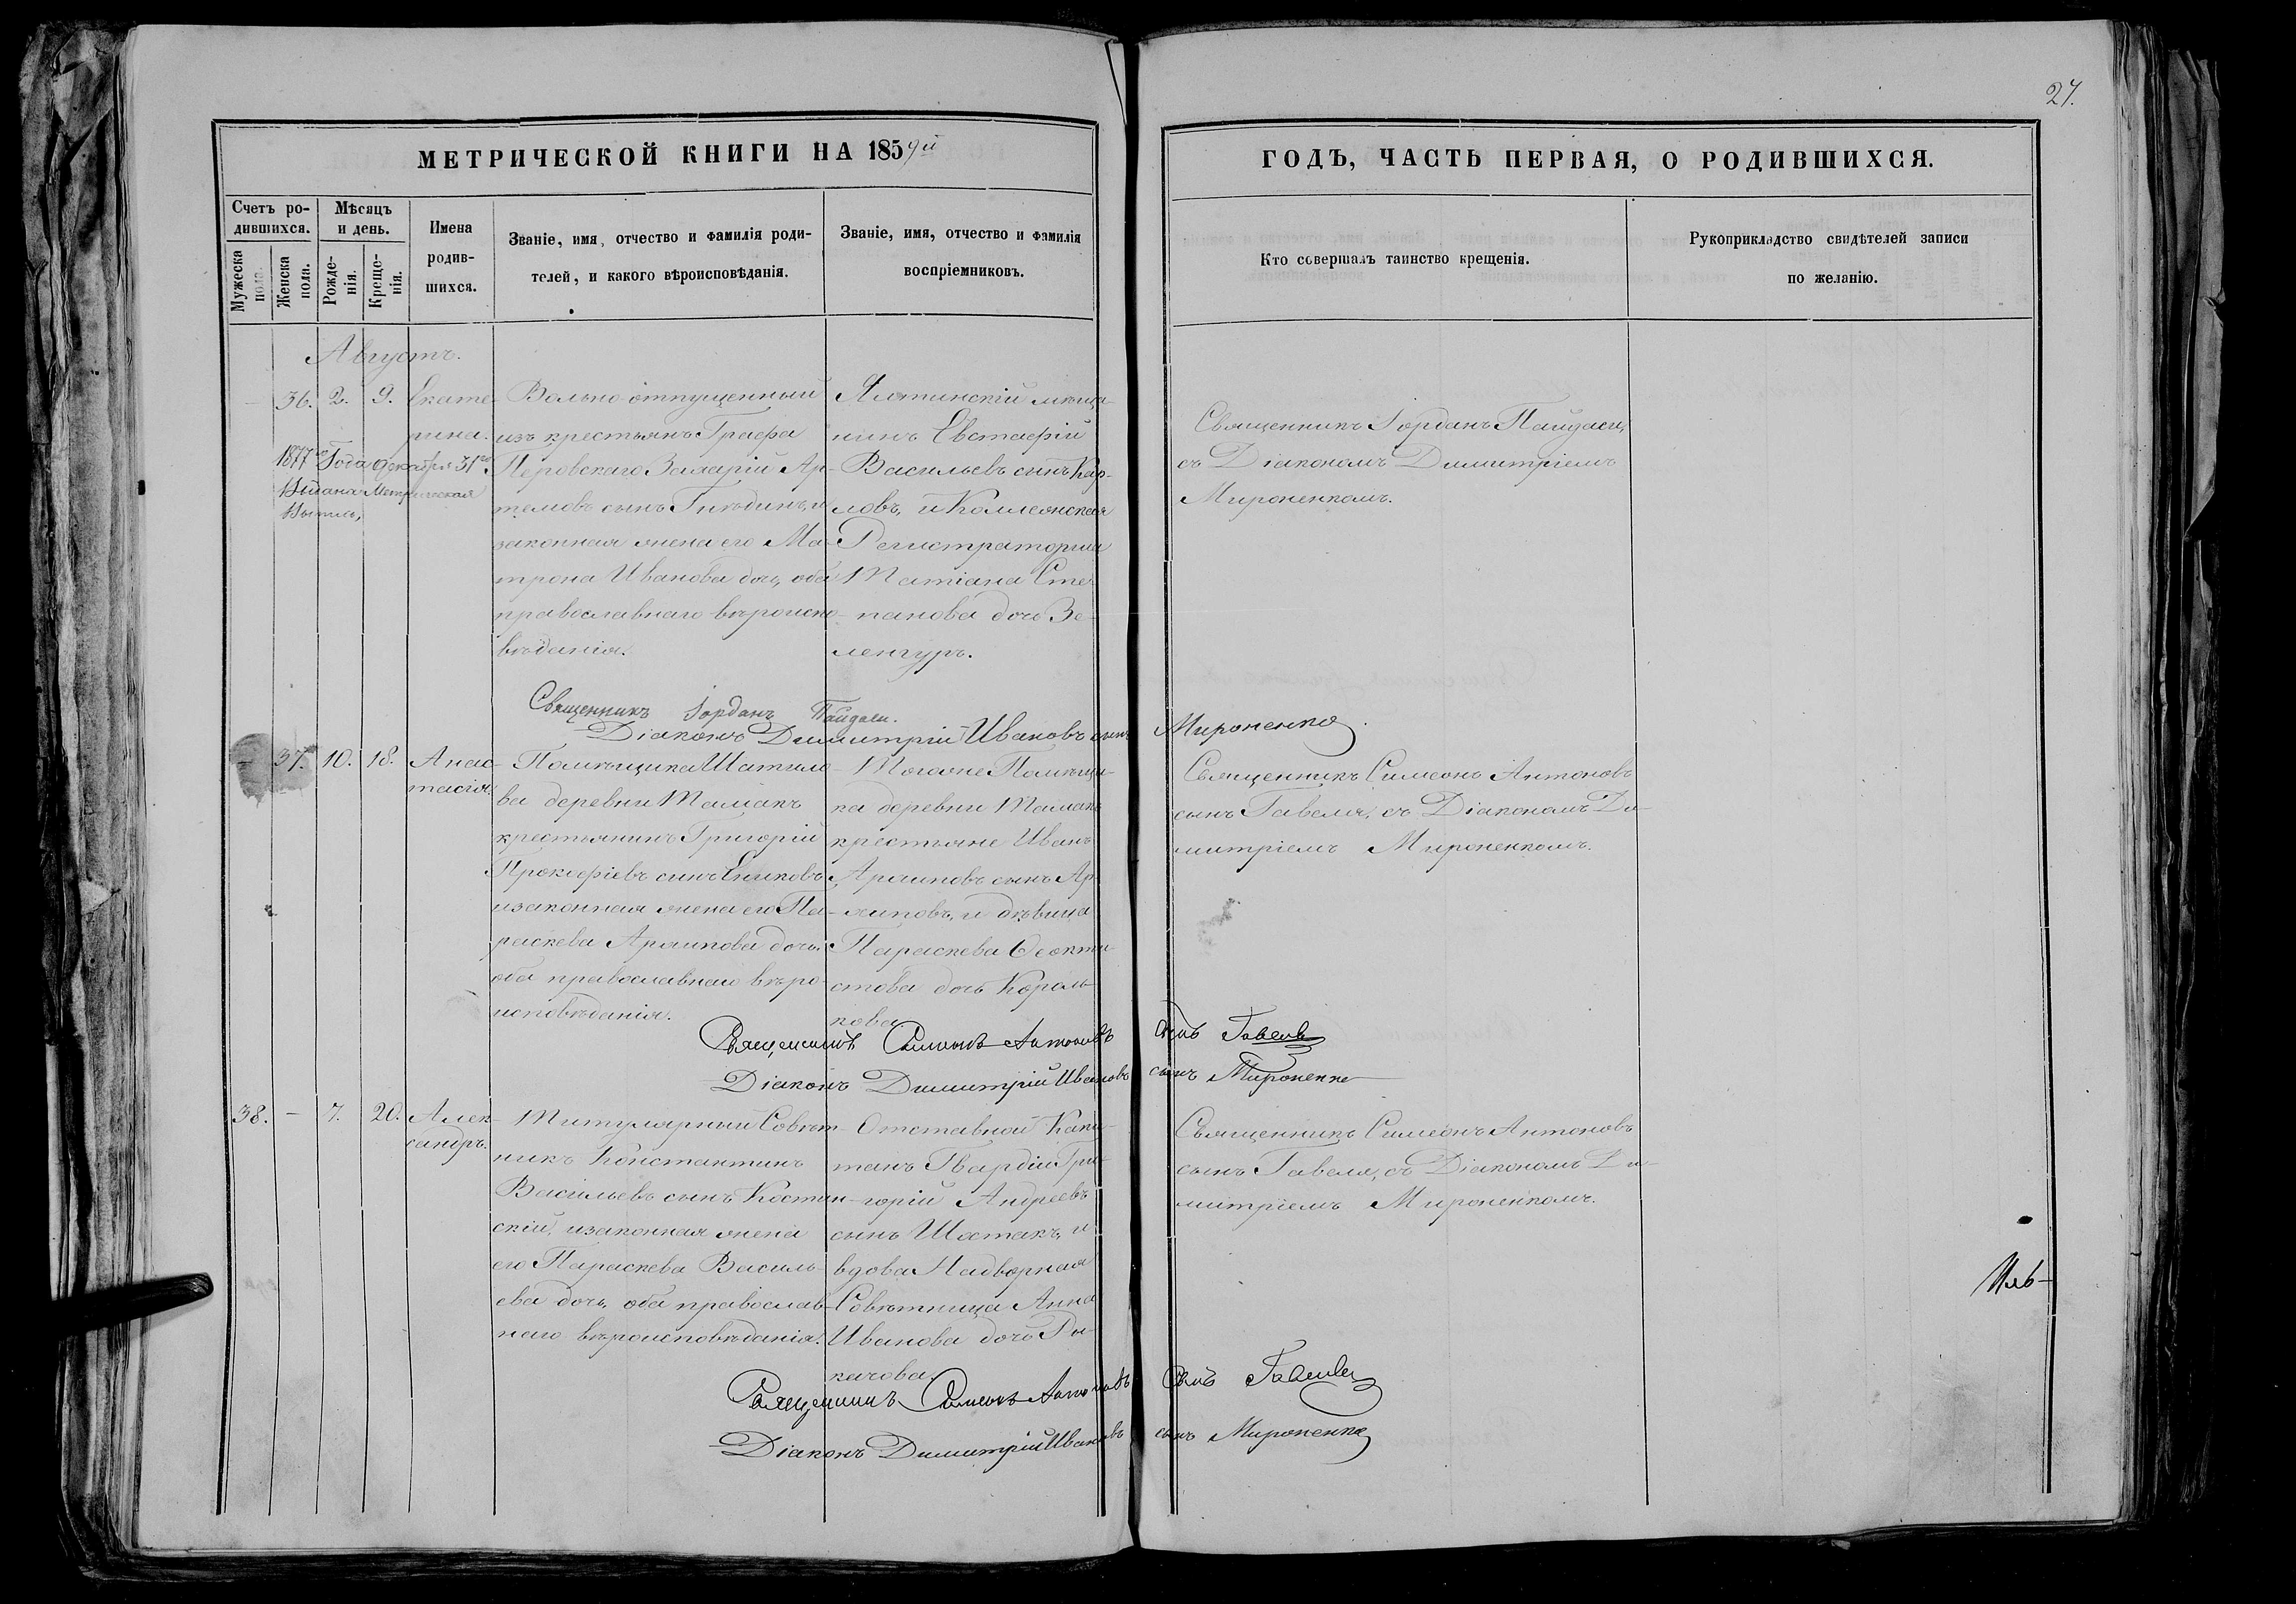 27.
МЕТРИЧЕСКОЙ КНИГИ НА 1859й
ГОДЪ, ЧАСТЬ ПЕРВАЯ, О РОДИВШИХСЯ.
Счетъ ро-
дившихся.
Мужеска
пола.
Женска
пола.
Мѣсяцъ
и день.
Рожде-
нія.
Креще-
нія.
Имена
родив-
шихся.
Званіе, имя, отчество и фамилія роди-
телей, и какого вѣроисповѣданія.
Званіе, имя, отчество и фамилія
воспріемниковъ.
Кто совершалъ таинство крещенія.
Рукоприкладство свидѣтелей записи
по желанію.
Августъ.
36. 2. 9. Екате-
рина.
1877го Года Октября 31го
Выдана Метрическая
Выпись,
Вольно отпущенный
изъ крестьянъ Графа
Перовскаго Захарій Ар-
темовъ сынъ и
законная жена его Ма-
трона Иванова дочь, оба
православнаго вѣроиспо-
вѣданія.
Ялтинскій мѣща-
нинъ Евстафій
Васильевъ сынъ Кар-
ловъ, и Коллежская
Регистраторша
Татіана Сте-
панова дочь Зе-
ленгуръ.
Священникъ Іорданъ Пайдаси,
съ Діакономъ Димитріемъ
Мироненкомъ.
Священникъ Іорданъ Пайдаси.
Діаконъ Димитрій Ивановъ сынъ Мироненко.
37. 10. 18. Анас-
тасія.
Помѣщика Шатило-
ва деревни Тамакъ
крестьянинъ Григорій
Прокофіевъ сынъ
и законная жена его Па-
раскева Архипова дочь,
оба православнаго вѣро-
исповѣданія.
Тогоже Помѣщи-
ка деревни Тамакъ
крестьяне Иванъ
Архиповъ сынъ Ар-
хиповъ, и дѣвица
Параскева Ѳеокти-
стова дочь Король-
кова
Священникъ Симеонъ Антоновъ
сынъ Гавеля, съ Діакономъ Ди-
митріемъ Мироненкомъ.
Священникъ Симеонъ Антоновъ сынъ Гавеля
Діаконъ Димитрій Ивановъ сынъ Мироненко
38. – 7. 20. Алек-
сандръ.
Титулярный Совѣт-
никъ Константинъ
Васильевъ сынъ Костин-
скій, и законная жена
его Параскева Василь-
ева дочь, оба православ-
наго вѣроисповѣданія.
Отставной Капи-
танъ Гвардіи Гри-
горій Андреевъ
сынъ Шостакъ, и
вдова Надворная
Совѣтница Анна
Иванова дочь Ры-
качова
Священникъ Симеонъ Антоновъ
сынъ Гавеля, съ Діакономъ Ди-
митріемъ Мироненкомъ.
Священникъ Симеонъ Антоновъ сынъ Гавеля
Діаконъ Димитрій Ивановъ сынъ Мироненко